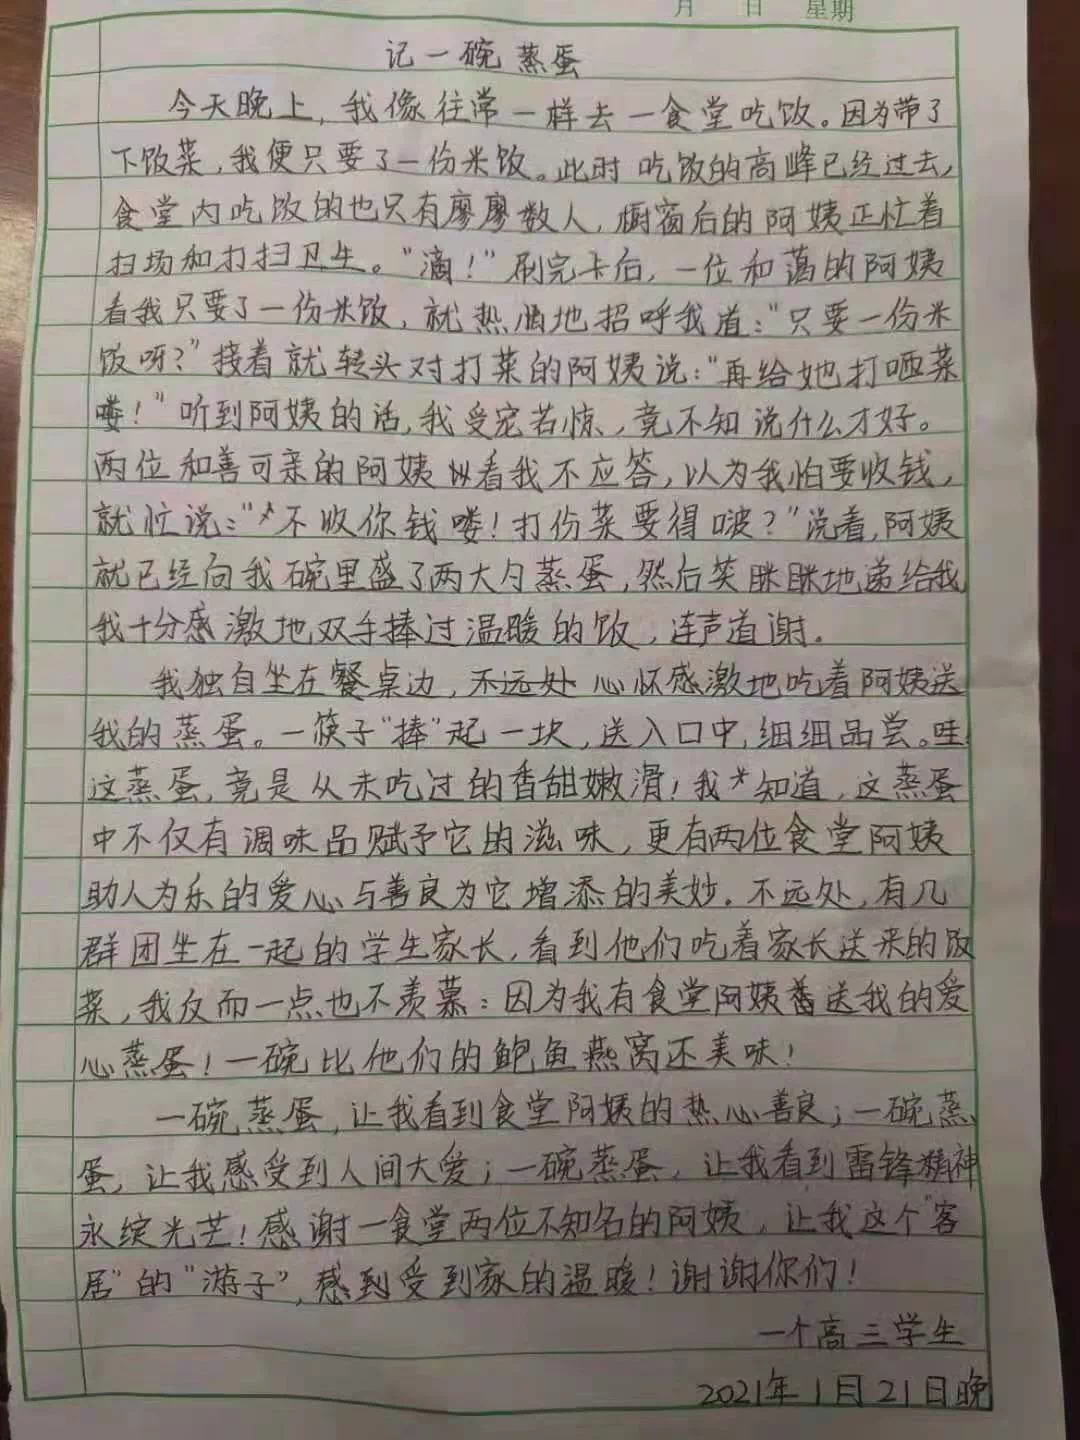 月 日 星期
记一碗蒸蛋
今天晚上，我像往常一样去一食堂吃饭。因为带了
下饭菜，我便只要了一份米饭。此时吃饭的高峰已经过去，
食堂内吃饭的也只有廖廖数人，橱窗后的阿姨正忙着
扫场和打扫卫生。“滴！”刷完卡后，一位和蔼的阿姨
看我只要了一份米饭，就热情地招呼我道：“只要一份米
饭呀？”接着就转头对打菜的阿姨说：“再给她打哂菜
喽！”听到阿姨的话，我受宠若惊，竟不知说什么才好。
两位和善可亲的阿姨看我不应答，以为我怕要收钱，
就忙说：“不收你钱喽！打份菜要得啵？”说着，阿姨
就已经向我碗里盛了两大勺蒸蛋，然后笑眯眯地递给我
我十分感激地双手捧过温暖的饭，连声道谢。
我独自坐在餐桌边，不远处心怀感激地吃着阿姨送
我的蒸蛋。一筷子“捧”起一块，送入口中，细细品尝。哇
这蒸蛋，竟是从未吃过的香甜嫩滑！我知道，这蒸蛋
中不仅有调味品赋予它的滋味，更有两位食堂阿姨
助人为乐的爱心与善良为它增添的美妙。不远处，有几
群团坐在一起的学生家长，看到他们吃着家长送来的饭
菜，我反而一点也不羡慕：因为我有食堂阿姨送我的爱
心蒸蛋！一碗比他们的鲍鱼燕窝还美味！
一碗蒸蛋，让我看到食堂阿姨的热心善良；一碗蒸
蛋，让我感受到人间大爱；一碗蒸蛋，让我看到雷锋精神
永绽光芒！感谢一食堂两位不知名的阿姨，让我这个“客
居”的“游子”，感到受到家的温暖！谢谢你们！
一个高三学生
2021年1月21日晚